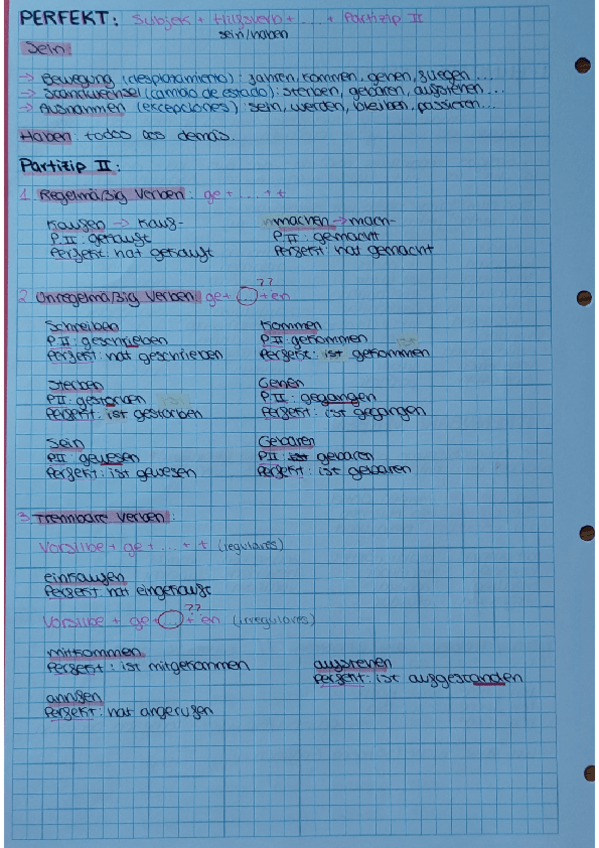 PERFEKT: Subjek + Hilfsverb + ... + Partizip II
sein/haben
Sein:
→ Bewegung (desplazamiento): fahren, kommen, gehen, fliegen...
→ Standwechsel (cambio de estado): sterben, gebären, aufstehen...
→ Ausnahmen (excepciones): sein, werden, bleiben, passieren...
Haben: todos los demás.
Partizip II:
1. Regelmäßig Verben: ge + ... + t
Kaufen → Kauf- machen → mach-
P II: gekauft P II: gemacht
Perfekt: hat gekauft Perfekt: hat gemacht
??
2. Unregelmäßig Verben: ge + ... + en
Schreiben Kommen
P II: geschrieben P II: gekommen
Perfekt: hat geschrieben Perfekt: ist gekommen
Sterben Gehen
P II: gestorben P II: gegangen
Perfekt: ist gestorben Perfekt: ist gegangen
Sein Gebaren
P II: gewesen P II: ist gebaren
Perfekt: ist gewesen Perfekt: ist gebaren
3. Trennbare Verben:
Vorsilbe + ge + ... + t (regulares)
einkaufen
Perfekt: hat eingekauft
??
Vorsilbe + ge + ... + en (irregulares)
mitkommen
Perfekt: ist mitgekommen aufstehen
Perfekt: ist aufgestanden
anrufen
Perfekt: hat angerufen